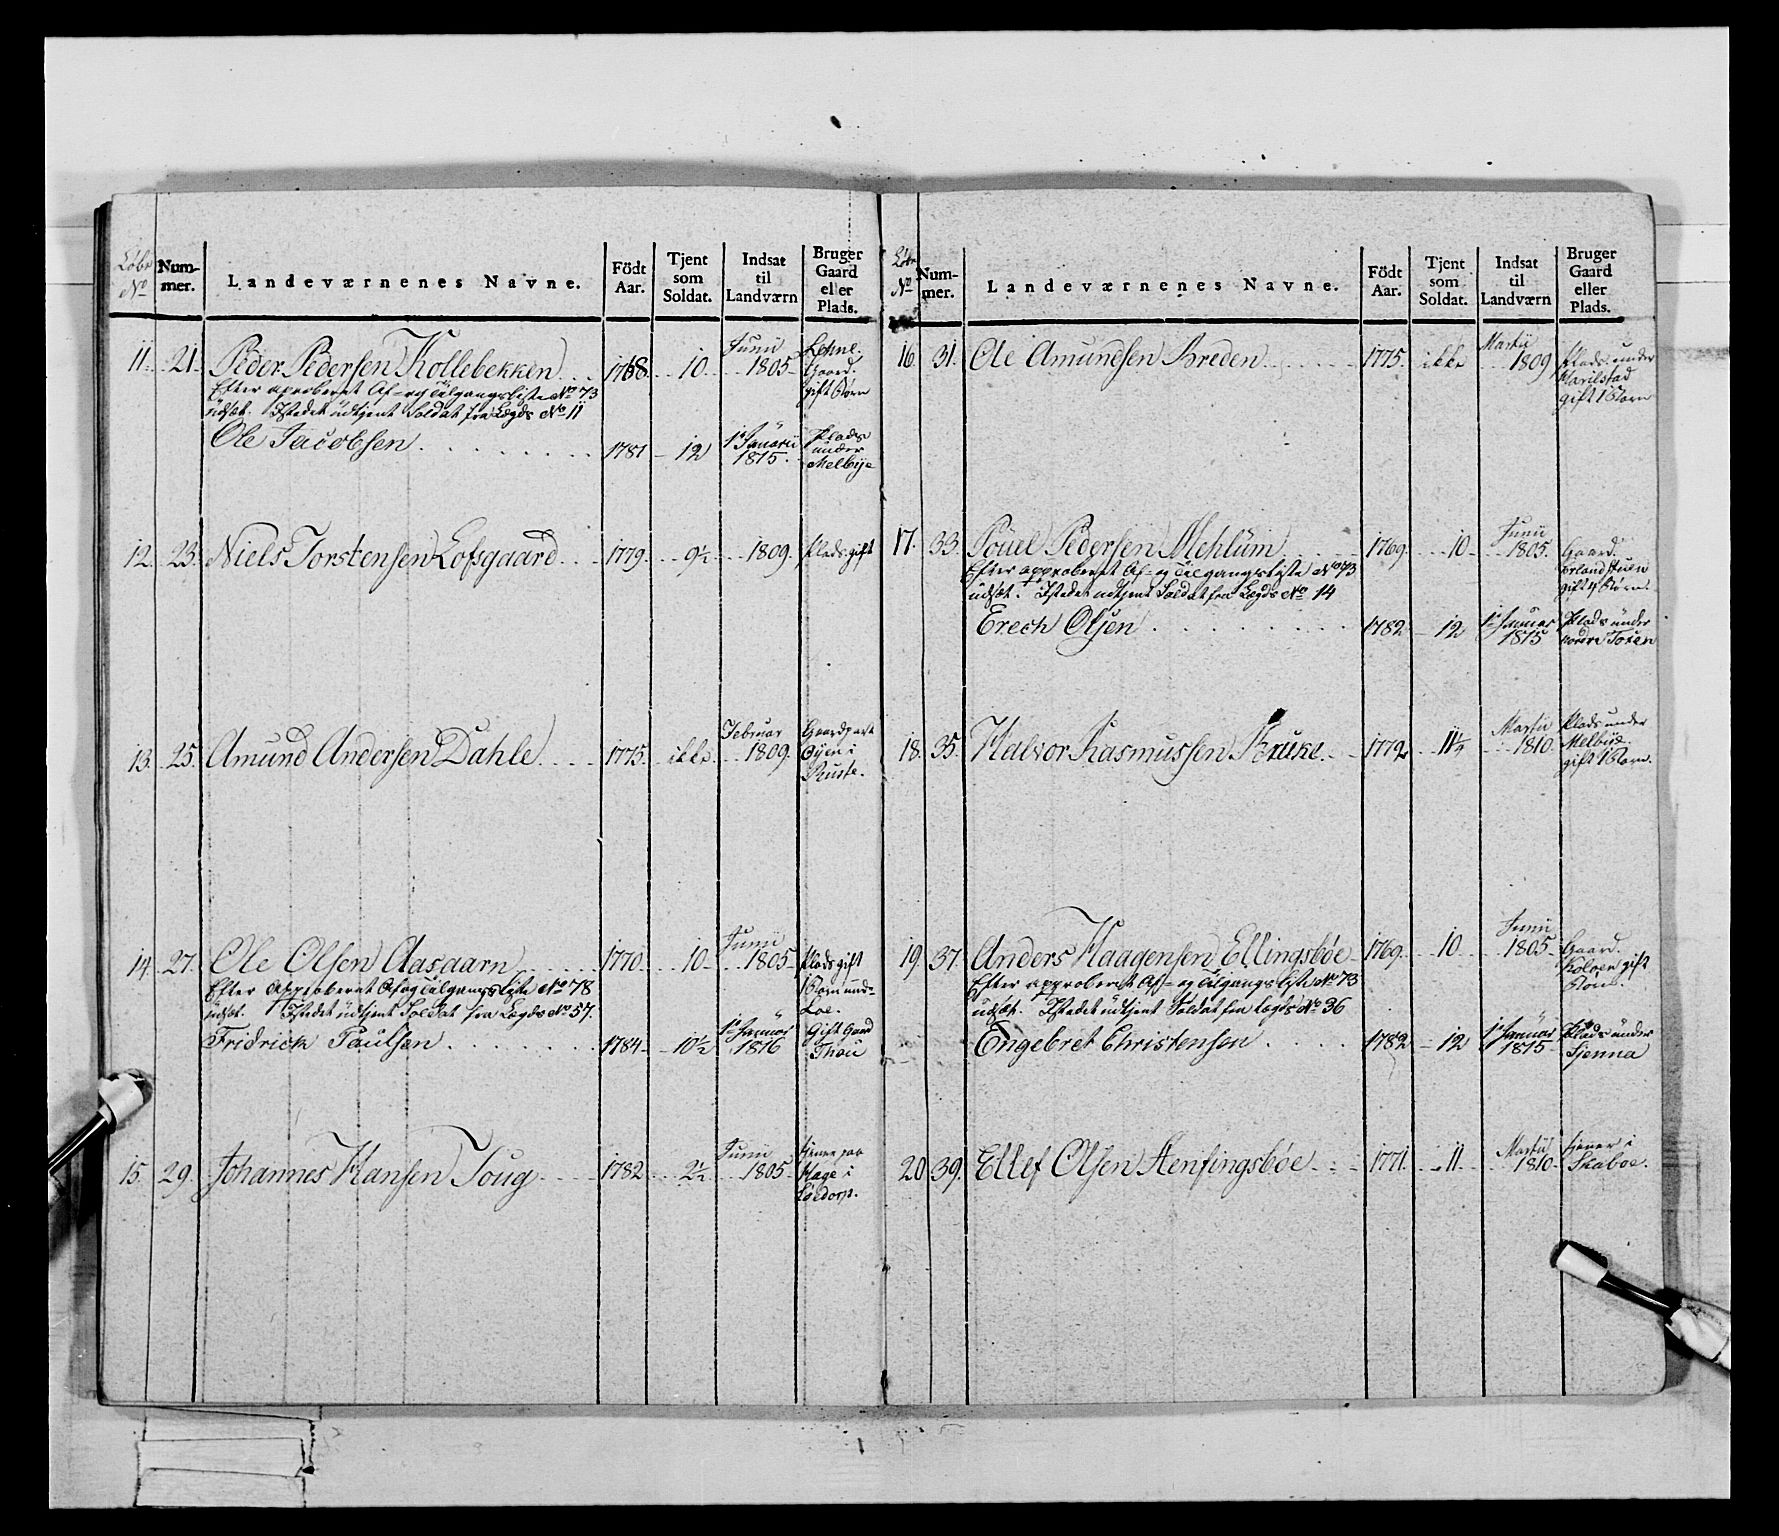 Løbe No
Num-mer.
Landeværnenes Navne.
Födt Aar.
Tjent som Soldat.
Indsat til Landværn
Bruger Gaard eller Plads.
11. 21. Peder Pedersen Kollebekken 1768. 10 Junii 1805 Gaard. gift Børn
Efter aproberet Af- og Tilgangsliste No 73
udsat. Istedet udtjent Soldat fra Lægds No 11
Ole Jacobsen 1781 12 1te Januarii 1815 Plads under Melbye
12. 23. Niels Torstensen Lofsgaard 1779. 9½ 1809. Plads gift
13. 25. Amund Andersen Dahle 1775. ikke. Februar 1809. Gaardpart Øyen i Ruste.
14. 27. Ole Olsen Aasaarn 1770 10 Junii 1805 Plads gift 1 Barn under Loe.
Efter Approberet Af og Tilgangs Liste No 78
udsat. Istedet udtjent Soldat fra Lægds No 57.
Fridrick Paulsen 1784 10½ 1te Januar 1816 Gift Gaard Thou
15. 29. Johannes Hansen Toug 1782 2½ Junii 1805 tjener paa Hage i
Løbe No
Num-mer.
Landeværnenes Navne.
Födt Aar.
Tjent som Soldat.
Indsat til Landværn
Bruger Gaard eller Plads.
16. 31. Ole Amundsen Breden 1775. ikke Martii 1809 Plads under gift 1 Barn
17. 33. Pouel Pedersen Mehlum 1769. 10 Junii 1805. Gaard. gift 4 Børn.
Efter approberet Af- og Tilgangsliste No 73
udsat. Istedet udtjent Soldat fra Lægds No 14
Erech Olsen 1782 12 1te Januar 1815 Plads under nordre Toxen
18. 35. Halvor Rasmussen Bruke 1772 11¼ Martii 1810 Plads under Melbye gift 1 Barn.
19. 37. Anders Haagensen Ellingsbøe 1769. 10 Junii 1805 Gaard. Kolven gift
Efter approberet Af- og Tilgangsliste No 73
udsat. Istedet udtjent Soldat fra Lægds No 36
Engebret Christensen 1782 12 1te Januar 1815 Plads under Sjenna
20 39. Ellef Olsen Hensingsbøe 1771. 11 Martii 1810 tjener i Skaboe.